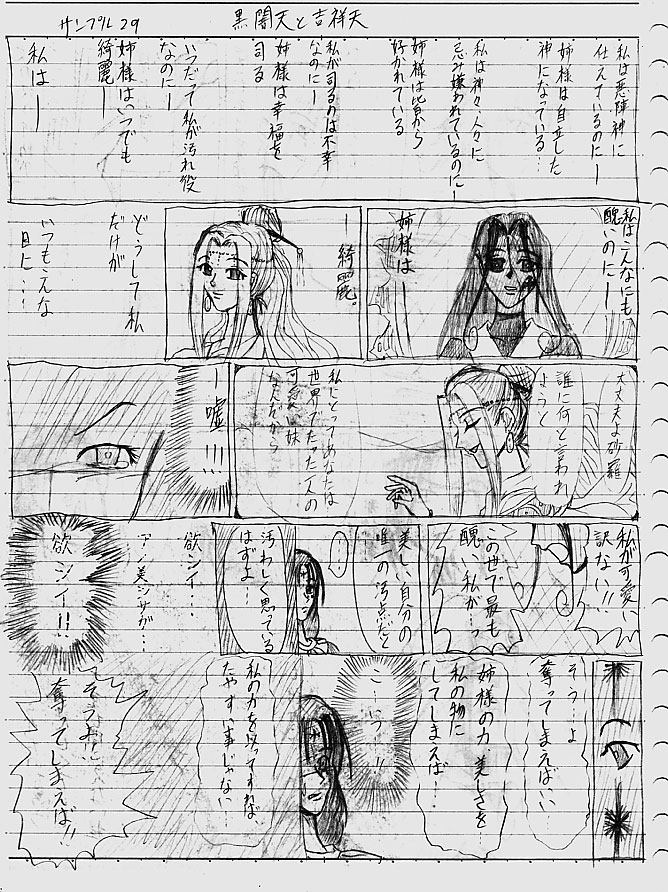 サンプル29
黒闇天と吉祥天
私は悪陣神に
仕えているのにー
姉様は自立した
神になっている…
私は神々・人々に
忌み嫌われているのにー
姉様は皆から
好かれている
私が司るのは不幸
なのにー
姉様は幸福を
司る
いつだって私が汚れ役
なのにー
姉様はいつでも
綺麗ー
私はー
私はこんなにも
醜いのにー
姉様はー
ー綺麗。
どうして私
だけが
いつもこんな
目に…
大丈夫よ砂羅
誰に何と言われ
ようと
私にとってあなたは
世界でたった一人の
可愛い妹
なんだから
ー嘘!!!
私が可愛い
訳ない!!
この世で最も
醜い私が…っ
美しい自分の
唯一の汚点だと
…
汚わしく思っている
はずよ…
欲シイ…
アノ美シサが…
欲シイ!!
そう…よ
奪ってしまえばいい
姉様の力、美しさを…
私の物に
してしまえば…
こ…いつ…!!
私の力を以ってすれば、
たやすい事じゃない…
そうよ!!
奪ってしまえば!!